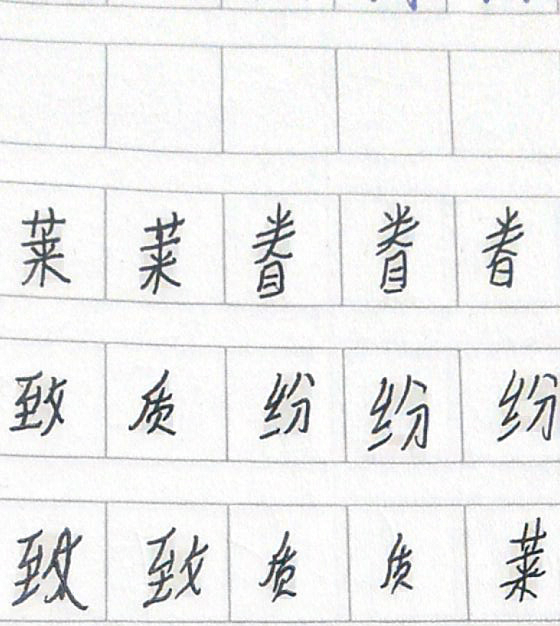 莱莱眷眷眷
致质纷纷纷
致致质质莱